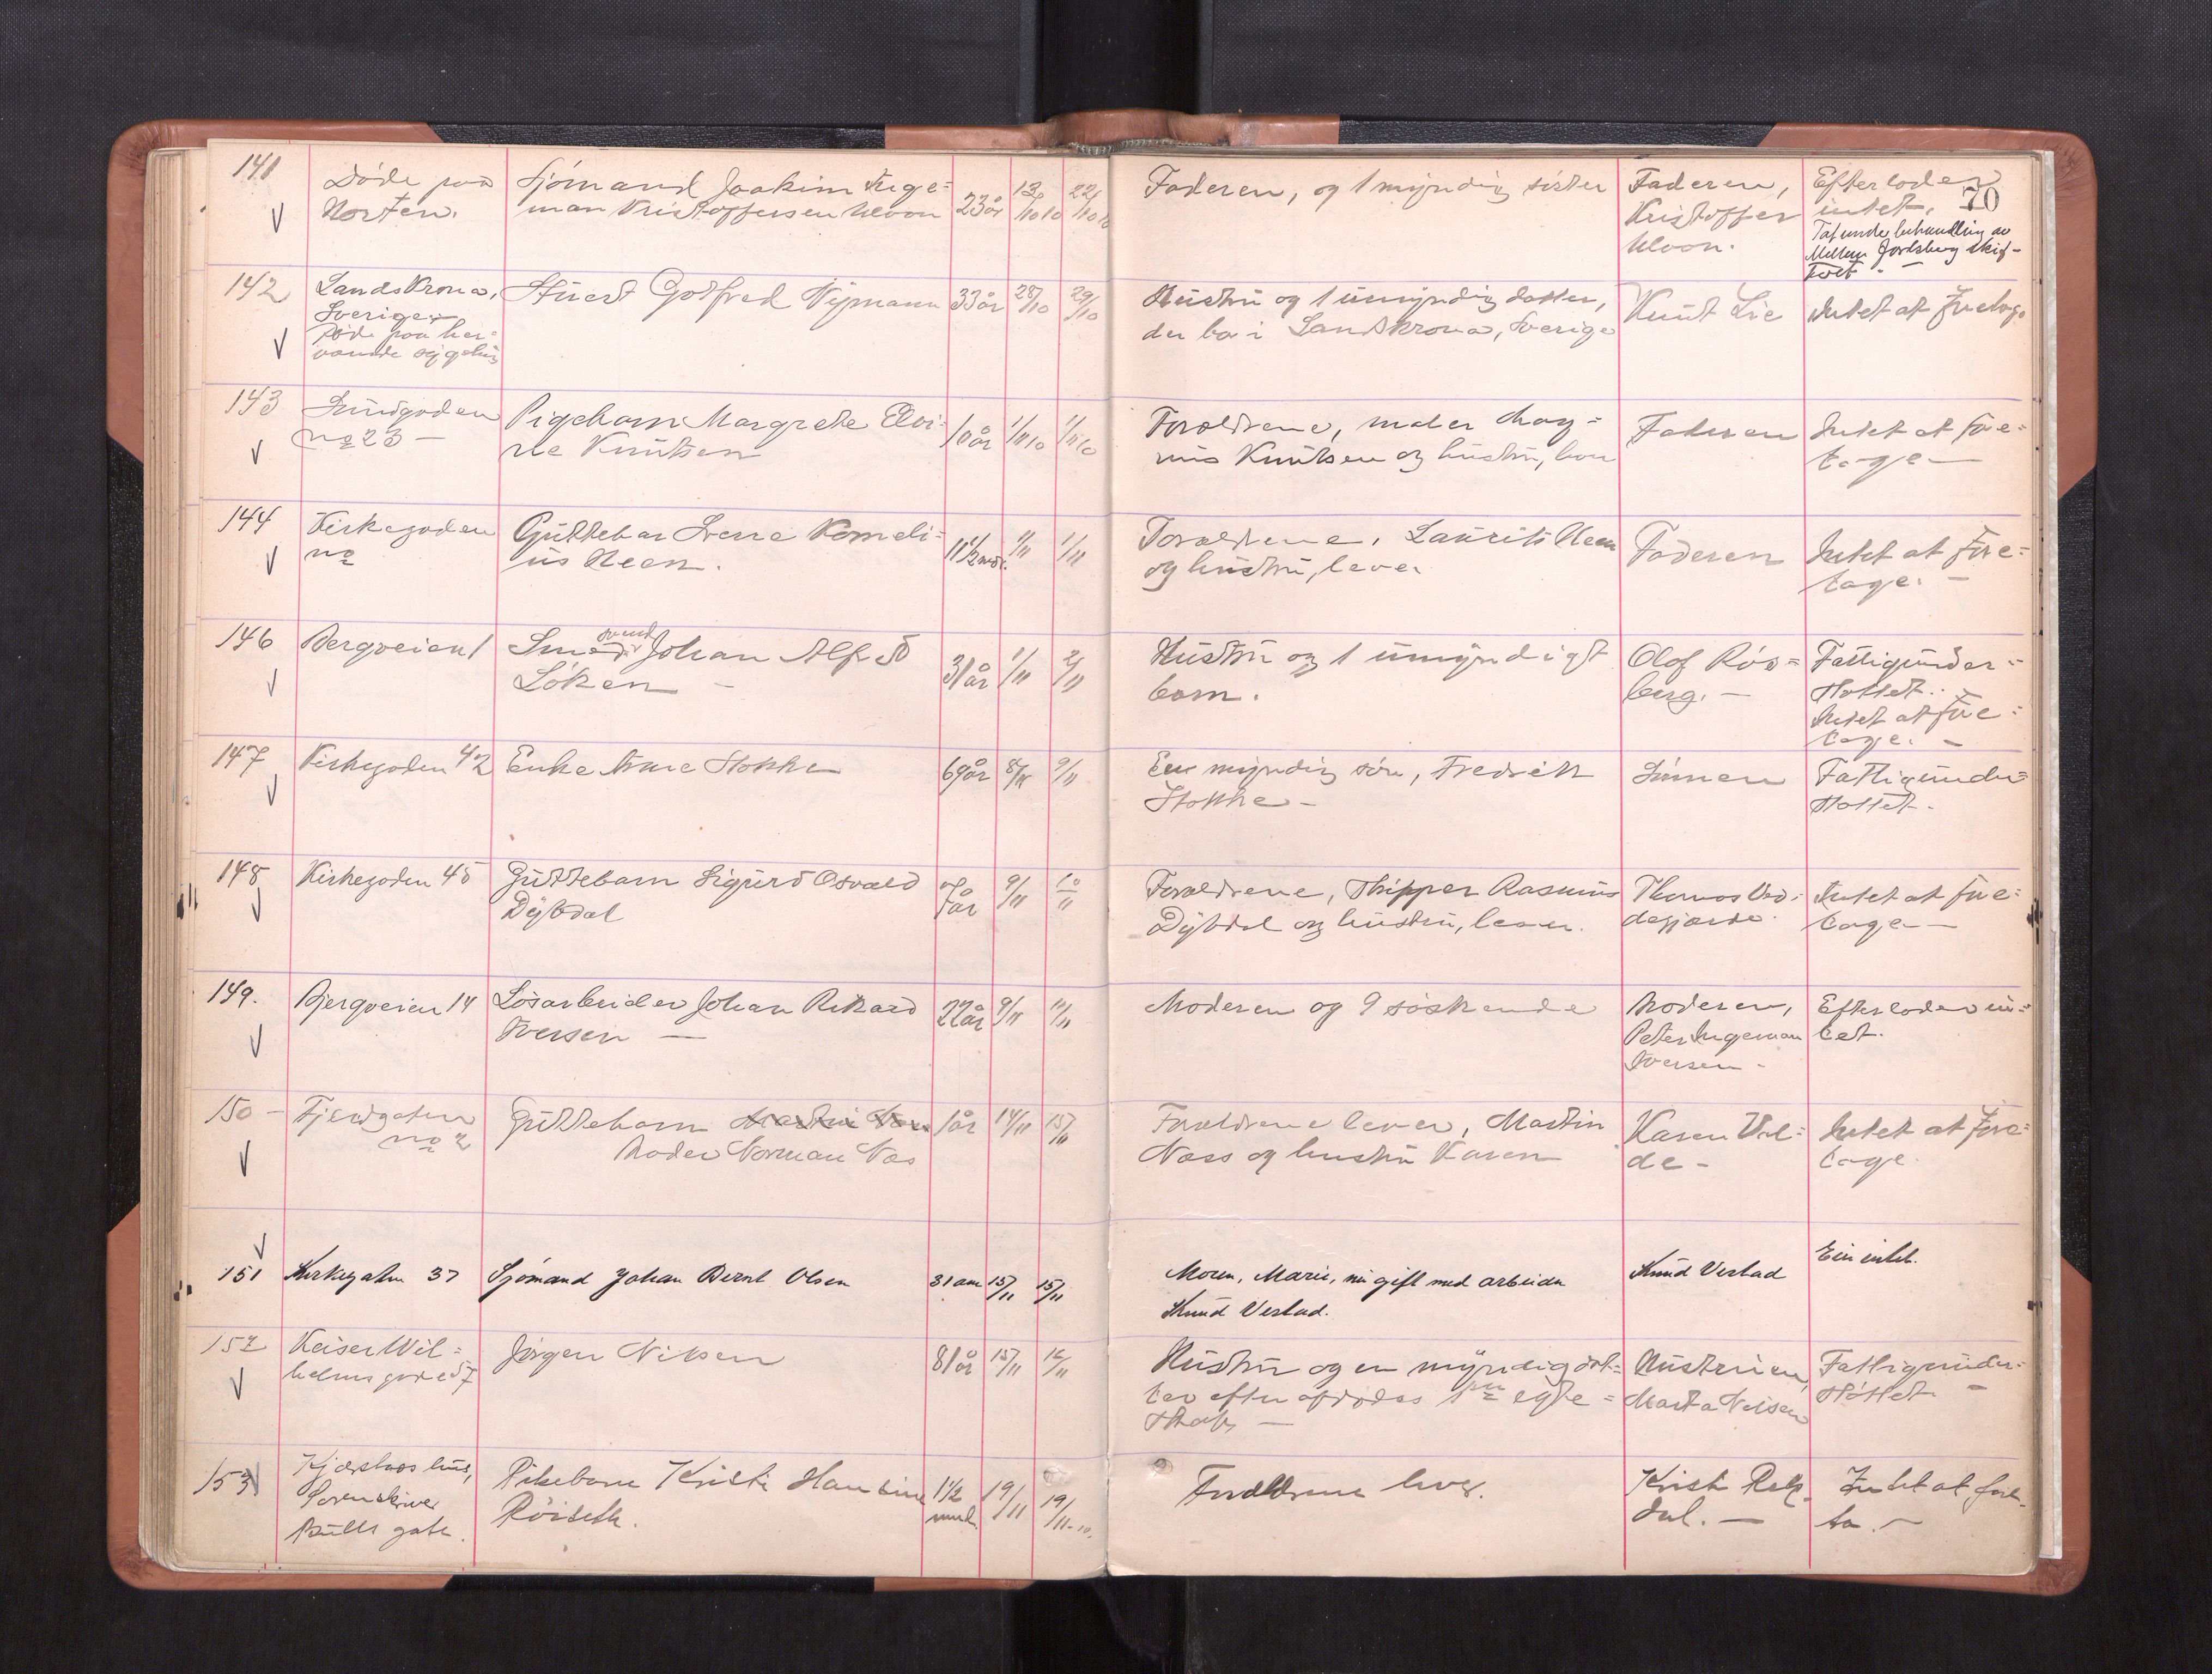 70
141
Døde paa
Horten.
Sjømand Joakim Inge=
man Kristoffersen Uloon
23 år
13/10 10
22/10 10
Faderen, og 1 myndig søster
Faderen,
Kristoffer
Uloon.
Efterloder
intet.
Tat under behandling av
Jarlsberg skif-
142
Landskrona,
Sverige.
Døde paa her-
Stuert Gotfred Nymann
33 år
28/10
29/10
Hustru og 1 umyndig datter,
der bor i Landskrona, Sverige
Knut Lie
Intet at foretage
143
no 23 —
Pigebarn Margrethe Elvi-
ne Knutsen
10 år
1/11 10
1/11 10
Forældrene, maler Mag=
nus Knutsen og hustru, bor
Faderen
Intet at fore=
tage —
144
Kirkegaden
no
Guttebar Sverre Korneli=
us Neen.
11 1/2 md.
1/11
1/11
Forældrene, Laurits Neen
og hustru, lever
Faderen
Intet at fore=
tage. —
146
Bergveien 1
Smedsvend Johan Alfred
Löken —
31 år
1/11
2/11
Hustru og 1 umyndigt
barn.
Olof Ros=
berg. —
Fattigunder=
støttet.
Intet at fore=
tage. —
147
Kirkegaden 42
Enke Anne Stokke
69 år
8/11
9/11
En myndig søn, Fredrik
Stokke —
Sönnen
Fattigunder=
støttet.
148
Kirkegaden 45
Guttebarn Sigurd Osvald
Dybdal
år
9/11
10/11
Forældrene, Skipper Rasmus
Dybdal og hustru, lever.
Thomas
Intet at fore=
tage —
149.
Bjergveien 14
Løsarbeider Johan Rikard
Iversen —
22 år
9/11
11/11
Moderen og 9 søskende
Moderen,
Peter Ingeman
Iversen —
Efterloder in=
tet.
150 —
Fjeldgaten
no 2
Guttebarn Martin
Norman Næs
1 år
14/11
15/11
Forældrene lever, Martin
Næss og hustru Karen
Karen Val=
de —
Intet at fore=
tage.
151
Kirkegaten 37
Sjømand Johan Bernt Olsen
31 aar
15/11
15/11
Moren, Marie, nu gift med arbeider
Knud Verlad.
Knud Verlad
Eier intet.
152
Keiser Wil=
helms gade 57
Jørgen Nilsen
81 år
15/11
16/11
Hustru og en myndig dat=
ter efter afdødes 1ste egte=
skab —
Hustruen,
Marta Nilsen
Fattigunder=
støttet —
153
Kjærstads hus,
Sorenskriver
Bulls gate.
Pikebarn Kristi Hansine
Röiseth.
1 1/2
mnd.
19/11
19/11-10.
Forældrene lever.
Kristi Rek-
dal. —
Intet at fore-
ta. —